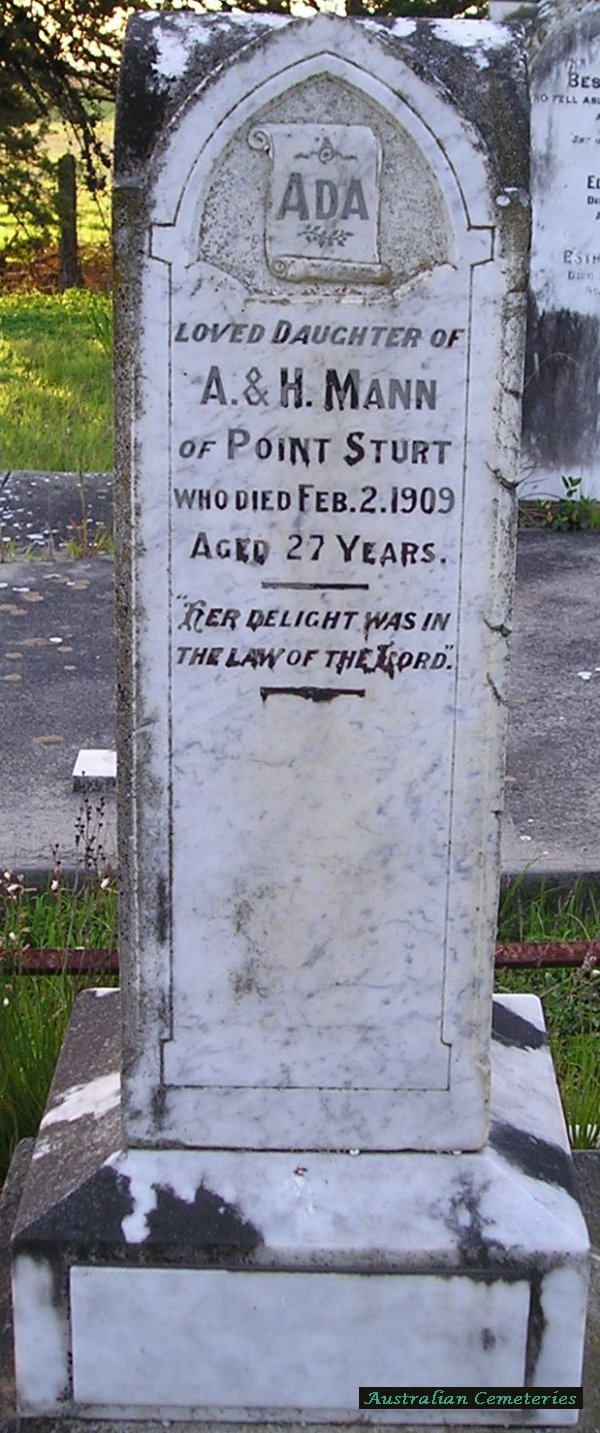 ADA
LOVED DAUGHTER OF
A. & H. MANN
OF POINT STURT
WHO DIED FEB. 2. 1909
AGED 27 YEARS.
"HER DELIGHT WAS IN
THE LAW OF THE LORD".
BES
ED
DIE
ESTH
DIED
Australian Cemeteries